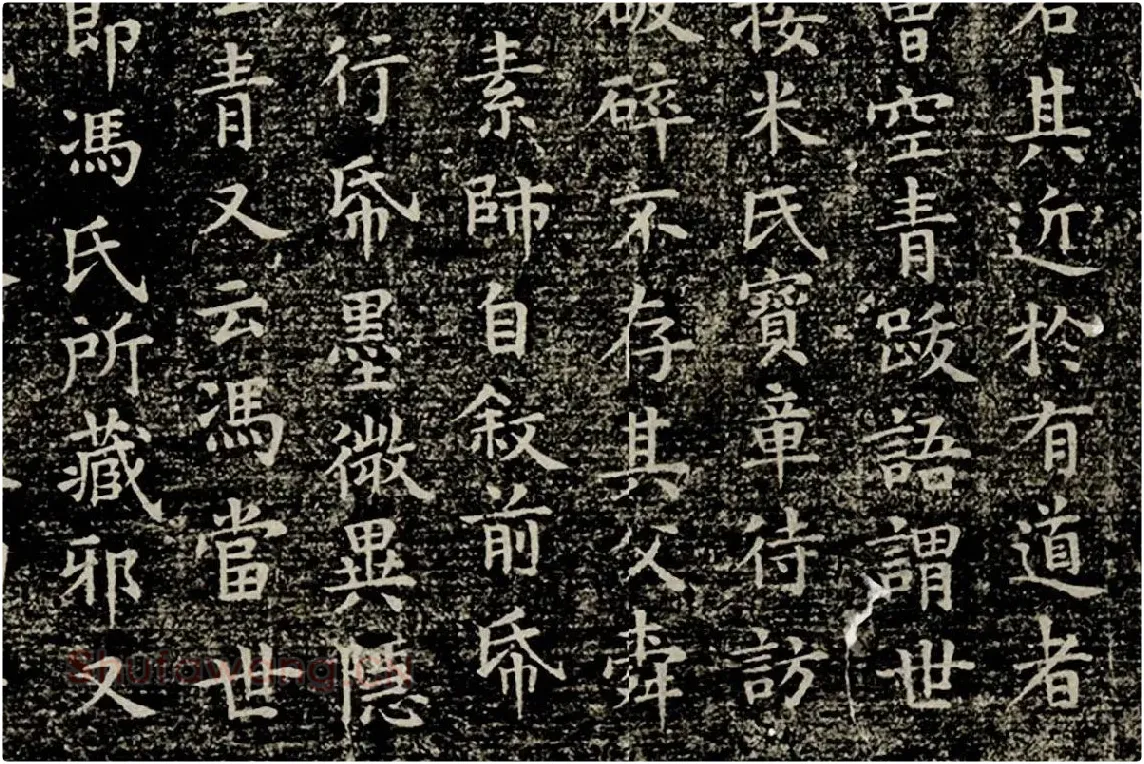 其近於有道者
曾空青跋語謂世
按米氏寳章待訪
破碎不存其父舜
素師自敘前帋
行帋墨微異隱
青又云馮當世
即馮氏所藏邪又
Shufawang.cn